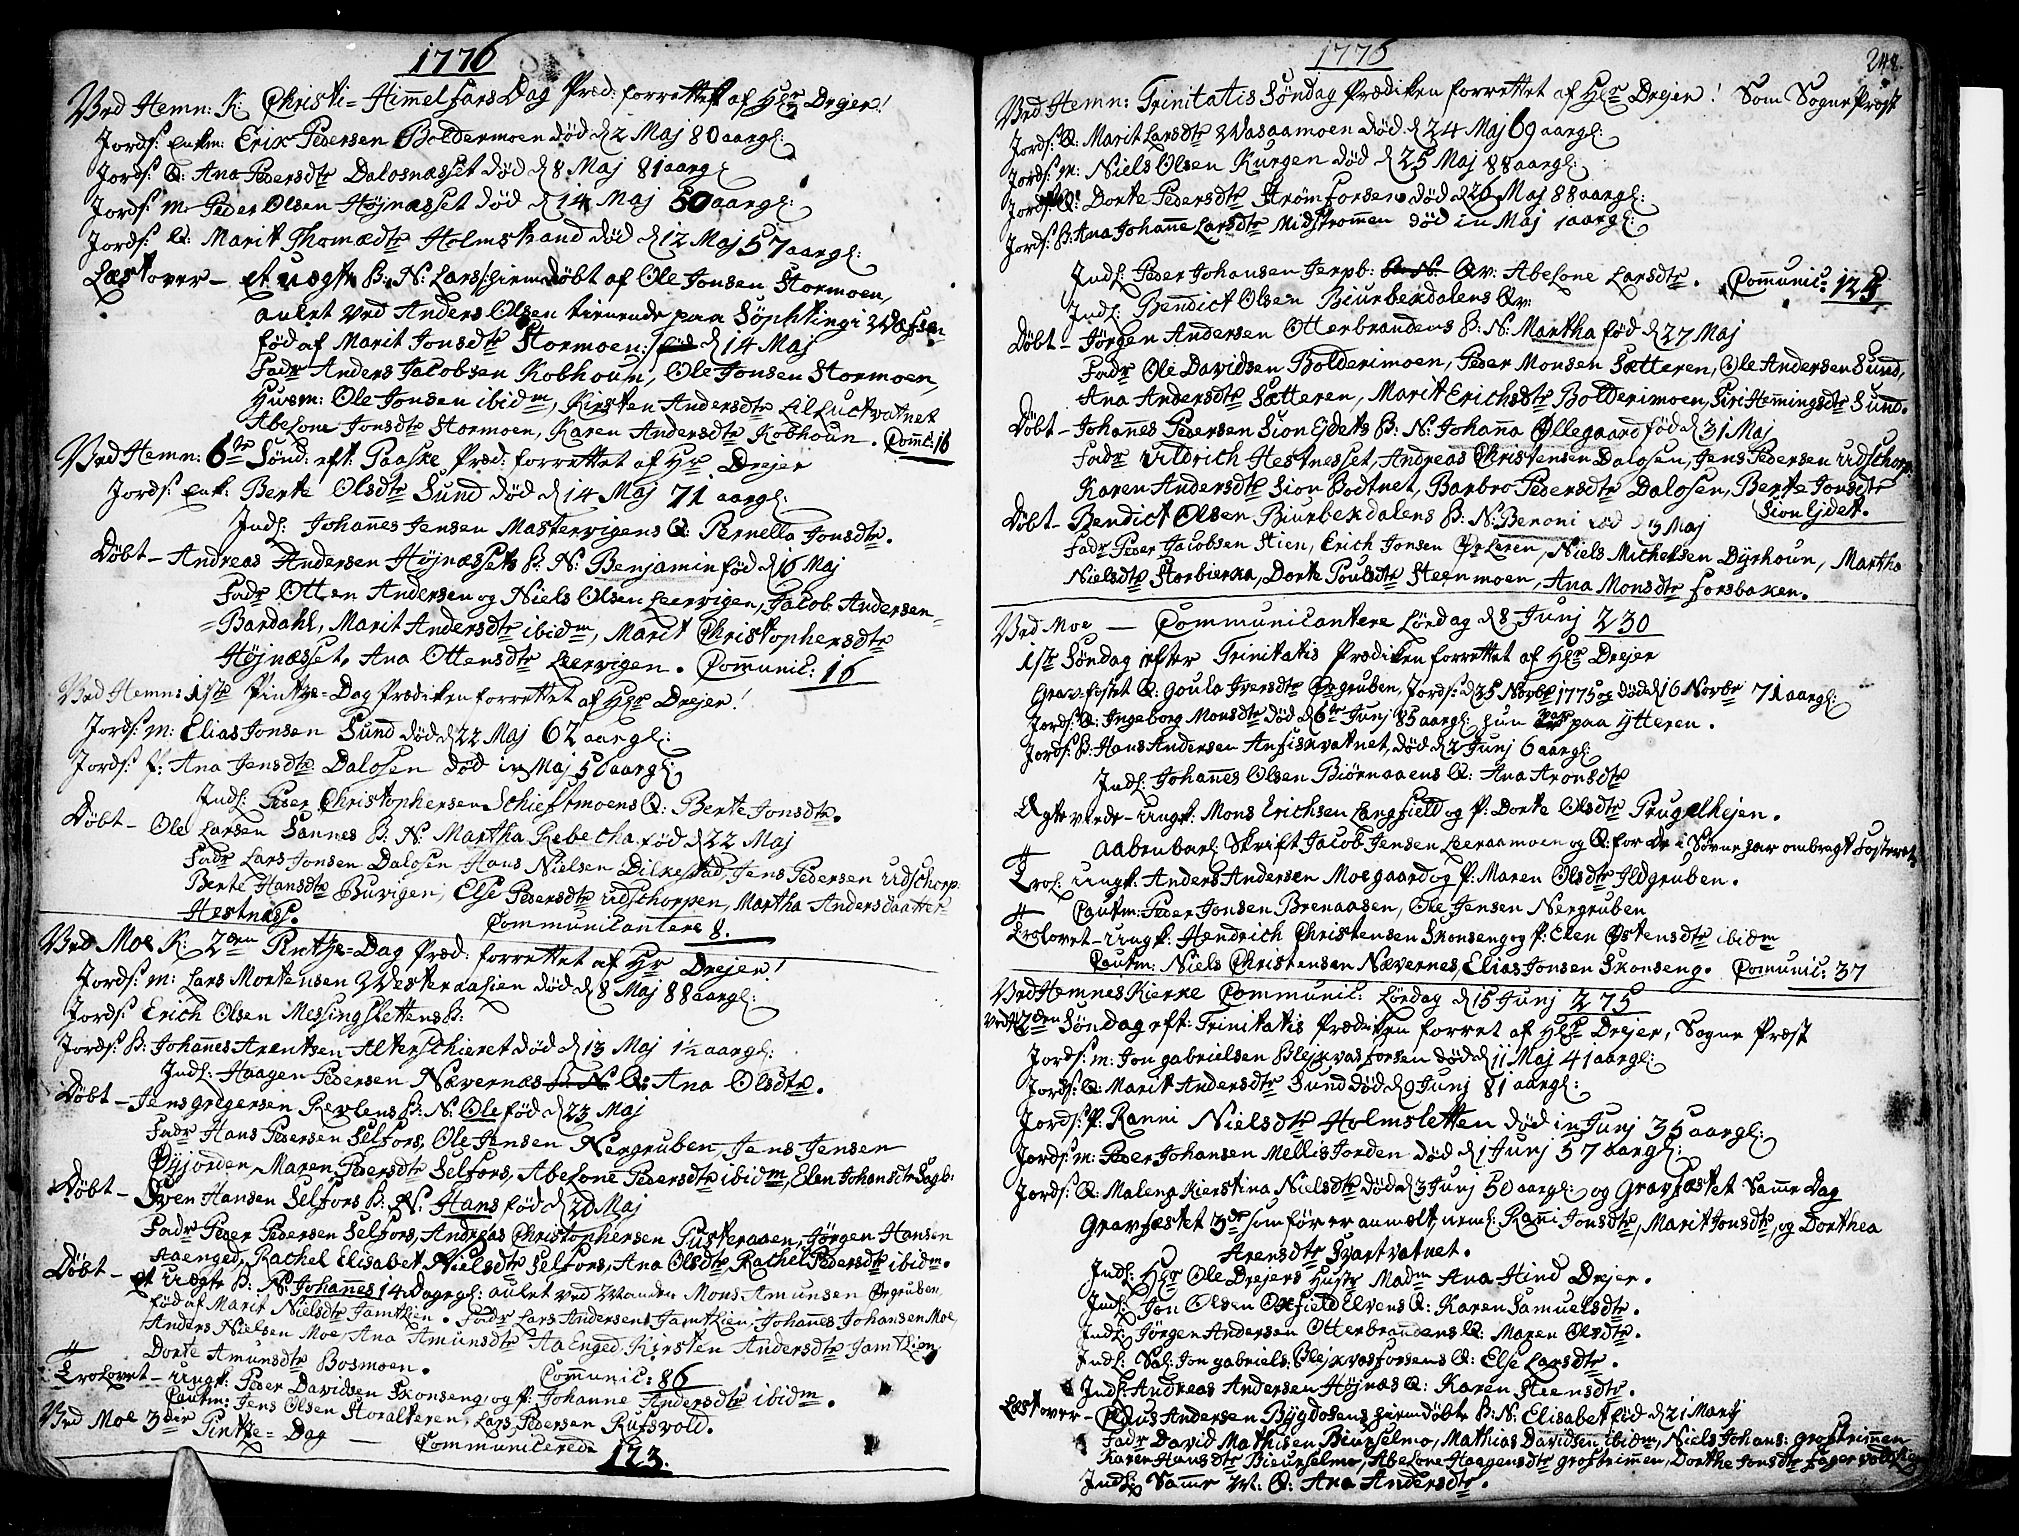 1776
Ved Hemn: K: Christi-Himmelfars Dag Præd: forrettet af Hr Drejer!
Jords: enkm: Erix Pedersen Boldermoen død d 2 Maj 80 aargl:
Jords: Q: Ana Pedersdtr Dalosnæsset død d 8 Maj 81 aargl
Jords: M: Peder Olsen Højnæsset død d 14 Maj 50 aargl:
Jords: Q: Marit Thomædtr Holmstrand død d 12 Maj 57 aargl:
Læst over – et uægte B: N: Lars hiemdøbt af Ole Jonsen Stormoen,
avlet ved Anders Olsen tienende paa Søphting i Wefsen
fød af Marit Jonsdtr Stormoen: d 14 Maj
Fadr Anders Jacobsen Kobhoun, Ole Jonsen Stormoen,
Husm: Ole Jonsen ibidm, Kirsten Andersdtr Lil Luctvatnet
Abelone Jonsdtr Stormoen, Karen Andersdtr Kobhoun. Coml: 16
Ved Hemn: 6te Sønd: eft: Paaske Præd: forrettet af Hr Drejer
Jords: enk: Berte Olsdtr Sund død d 14 Maj 71 aargl:
Indl: Johanes Jensen Mastervigens Q: Pernella Jonsdtr.
Døbt – Andreas Andersen Højnæssets B: N: Benjamin fød d 16 Maj
Fadr Otten Andersen og Niels Olsen Leervigen, Jacob Andersen
Bardahl, Marit Andersdtr ibidm, Marit Christophersdtr
Højnæsset, Ana Ottensdtr Leervigen. Communic: 16
Ved Hemn: 1ste Pintze-Dag Prædiken forrettet af Hr Drejer!
Jords: M: Elias Jonsen Sund død d 22 Maj 62 aargl:
Jords: P: Ana Jensdtr Dalosen død in Maj 50 aargl:
Indl: Peder Christophersen Schieftmoens Q: Berte Jonsdtr.
Døbt – Ole Larsen Sannes B: N: Martha Rebecha fød d 22 Maj
Fadr Lars Jonsen Dalosen Hans Nielsen Dilkestad, Jens Pedersen Udschorp:
Berte Hansdtr Buvigen, Else Pedersdtr Udschorpen, Martha Andersdaatter
Hestnæss. Communicantere 8.
Ved Moe K: 2den Pintze-Dag Præd: forrettet af Hr Drejer!
Jords: M: Lars Mortensen Westeraalien død d 8 Maj 88 aargl:
Jords: Erich Olsen Messingslettens B:
Jords: B: Johanes Arentsen Alterschieret død d 13 Maj 1½ aargl:
Indl: Haagen Pedersen Nævernæs Q: Ana Olsdtr.
Døbt – Jens gregersen Revlens B: N: Ole fød d 23 Maj
Fadr Hans Pedersen Selfors, Ole Jensen Nergruben, Jens Jensen
Øyjorden, Maren Pedersdtr Selfors, Abelone Pedersdtr ibidm, Elen Johansdtr
Døbt – Sven Hansen Selfors B: N: Hans fød d 20 Maj
Fadr Peder Pedersen Selfors, Andreas Christophersen Pusteraaen, Jørgen Hansen
Aaenged, Rachel Elisabet Nielsdtr Selfors, Ana Olsdtr, Rachel Pedersdtr ibidm.
Døbt – et uægte B: N: Johannes 14 Dagegl: avlet ved Manden Mons Amunsen Ørgruben
fød af Marit Nielsdtr Jamtlien. Fadr Lars Andersen Jamtlien, Johanes Johansen Moe,
Anders Nielsen Moe, Ana Amunsdtr Aa Enged, Kirsten Andersdtr Jamtlien,
Dorte Amunsdtr Bosmoen. Communic: 86
Trolovet – Ungk: Peder Davidsen Skonseng, og P: Johanne Andersdtr ibidm.
Cautm: Jens Olsen Storalteren, Lars Pedersen Rufsvold.
Ved Moe 3die Pintze-Dag – Communicerede
123.
1776
248.
Ved Hemn: Trinitatis Søndag Prædiken forrettet af Hr Drejer! Som Sogne Præst
Jords: Q: Marit Larsdtr Wasaamoen død d 24 Maj 69 aargl:
Jords: M: Niels Olsen Kurgen død d 25 Maj 88 aargl:
Jords: Q: Dorte Pedersdtr Strømforsen død d 26 Maj 88 aargl:
Jords: B: Ana Johane Larsdtr Midstrommen død in Maj 1 aargl:
Indl: Peder Johansen Jerpb: Qv: Abelone Larsdtr. Communic: 125
Indl: Bendict Olsen Biurbekdalens Qv:
Døbt – Jørgen Andersen Otterbrandens B: N: Martha fød d 27 Maj
Fadr Ole Davidsen Bolderimoen, Peder Monsen Sætteren, Ole Andersen Sund,
Ana Andersdtr Sætteren, Marit Erichsdtr Bolderimoen, Siri Hemingsdtr Sund.
Døbt – Johanes Pedersen Sion Ejdets B: N: Johana Ollegaard fød d 31 Maj
Fadr Uldrich Hestnesset, Andreas Christensen Dalosen, Jens Pedersen Udschorp.
Karen Andersdtr Sion Bodtnet, Barbro Pedersdtr Dalosen, Berte Jonsdtr
Sion Ejdet.
Døbt – Bendict Olsen Biurbekdalens B: N: Benoni fød d 3 Maj
Fadr Peder Jacobsen Stien, Erich Jonsen, Niels Michelsen Dyrhoun, Martha
Nielsdtr Storbierka, Dorte Poulsdtr Steenmoen, Ana Monsdtr Forsbaken.
Ved Moe – Communicantere Lørdag d 8 Junj 230
1ste Søndag efter Trinitatis Prædiken forrettet af Hr Drejer
Gravfæstet Q: Goula Iversdtr Ørgruben, Jords: d 25 Novbr 1775 og død d 16 Novbr 71 aargl:
Jords: Q: Ingeborg Monsdtr død d 6te Junj 85 aargl: hun var paa Ytteren.
Jords: B: Hans Andersen Anfiskvatnet, død d 2 Junj 6 aargl:
Indl: Johanes Olsen Biørnaaens Q: Ana Aronsdtr
Ægteviede – Ungk: Mons Erichsen Langfield og P: Dorte Olsdtr Prugelhejen.
Aabenbarl Skrift Jacob Jensen Leeraamoen og Q: for De i Søvne har ombragt Fosteret
Trol: Ungk: Anders Andersen Moegaard og P: Maren Olsdtr Ildgruben.
Cautm: Peder Jonsen Brenaasen, Ole Jensen Nergruben
Trolovet – Ungk: Hendrich Christensen Skonseng og P: Elen Østensdtr ibidm
Cautm: Niels Christensen Nævernes, Elias Jonsen Skonseng. Comunic: 37
Ved Hemnes Kierke Communic: Lørdag d 15 Junj 275
2den Søndag eft: Trinitatis Prædiken forret af Hr Drejer, Sogne Præst
Jords: M: Jon gabrielsen Blejkvasforsen død d 11 Maj 41 aargl:
Jords: Q: Marit Andersdtr Sund død d 9 Junj 81 aargl:
Jords: P: Ranni Nielsdtr Holmsletten død in Junj 35 aargl:
Jords: M: Peder Johansen Mellisjorden død d 1 Junj 57 aargl:
Jords: Q: Malena Kierstina Nielsdtr død d 3 Junj 50 aargl: og Gravfæstet Samme Dag
Gravfæstet 3de som før er anmælt, neml: Rani Jonsdtr, Marit Jonsdtr, og Dorthea
Arensdtr Svartvatnet.
Indl: Hr Ole Drejers Hustr Madm Ana Hind Drejer.
Indl: Jon Olsen Oxfieldelvens Q: Karen Samuelsdtr.
Indl: Jørgen Andersen Otterbrandens Q: Maren Olsdtr.
Indl: Sal: Jon gabriels: Blejkvasforsens Q: Else Larsdtr.
Indl: Andreas Andersen Højnæs Q: Karen Steensdtr.
Læst over – Claus Andersen Bygdosens hiemdøbte B: N: Elisabet fød d 21 Martij
Fadr David Mathisen Biurselmo, Mathias Davidsen ibidm, Niels Johans: grofbrimmen
Karen Hansdtr Bieurselmo, Abelone Haagensdtr grofbrimmen, Dorthe Jonsdtr
Indl: Samme M: Q: Ana Andersdtr.